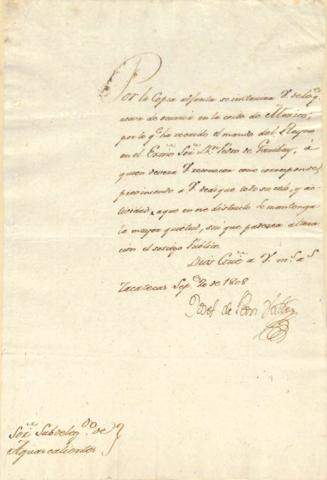 Por la Copia adjunta se instruirá V. de lo q.
acava de ocurrir en la corte de Mexico,
por lo q. ha recaido el mando del Reyno
en el Exmo Sor Dn. Pedro de Garibay, á
quien deverá V. reconocer como corresponde,
previniendo á V. dedique todo su celo, y ac-
tividad, a que en ese distrito se mantenga
la mayor quietud, sin que padezca altera-
cion el sosiego Publico.
Dios Gue á V. ms. as.
Zacatecas Sepe. 20 de 1808
de
Sor. Subdelegdo. de
Aguascalientes